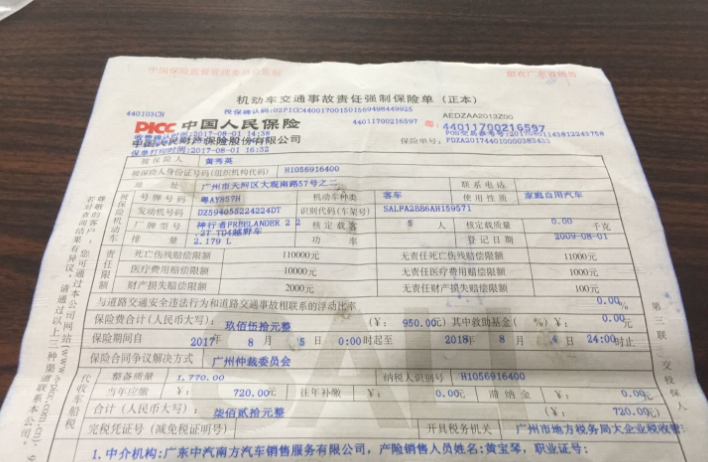 机动车交通事故责任强制保险单（正本）
440103CN
AEDZAA2013Z00
PICC 中国人民保险
44011700216597
44011700216597
收费确认时间:2017-08-01 14:38
中国人民财产保险股份有限公司
保单打印时间:2017-08-01 16:32
保险单号:
被保险人 黄秀英
被保险人身份证号码(组织机构代码) H1056916400
地址 广州市天河区大观南路57号之二 联系电话
被保险机动车 号牌号码 粤AY857H 机动车种类 客车 使用性质 家庭自用汽车
发动机号码 DZ59405522422​4DT 识别代码(车架号) SALFA28B6AH159571
厂牌型号 神行者FREELANDER 2 2.2T TD4越野车 核定载客 5 人 核定载质量 0.00 千克
排量 2.179 L 功率 登记日期 2009-08-01
责任限额 死亡伤残赔偿限额 110000元 无责任死亡伤残赔偿限额 11000元
医疗费用赔偿限额 10000元 无责任医疗费用赔偿限额 1000元
财产损失赔偿限额 2000元 无责任财产损失赔偿限额 100元
与道路交通安全违法行为和道路交通事故相联系的浮动比率 0.00%
保险费合计(人民币大写): 玖佰伍拾元整 (¥: 950.00元) 其中救助基金( %) ¥: 0.00元
保险期间自 2017 年 8 月 5 日 0:00 时起至 2018 年 8 月 4 日 24:00 时止
保险合同争议解决方式 广州仲裁委员会
代收车船税 整备质量 1,770.00 纳税人识别号 H1056916400
当年应缴 ¥: 720.00元 往年补缴 ¥: 0.00元 滞纳金 ¥: 0.00元
合计(人民币大写): 柒佰贰拾元整 (¥: 720.00元)
完税凭证号(减免税证明号) 开具税务机关 广州市地方税务局大企业税收管
1.中介机构:广东中汽南方汽车销售服务有限公司,产险销售人员姓名:黄宝琴,职业证号:
第三联 交投保人